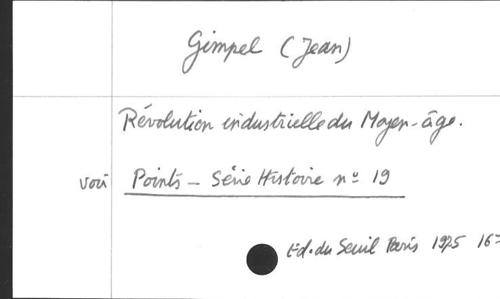 Gimpel (Jean)
Révolution industrielle du Moyen-âge.
voir Points - Série Histoire nº 19
Ed. du Seuil Paris 1975 16